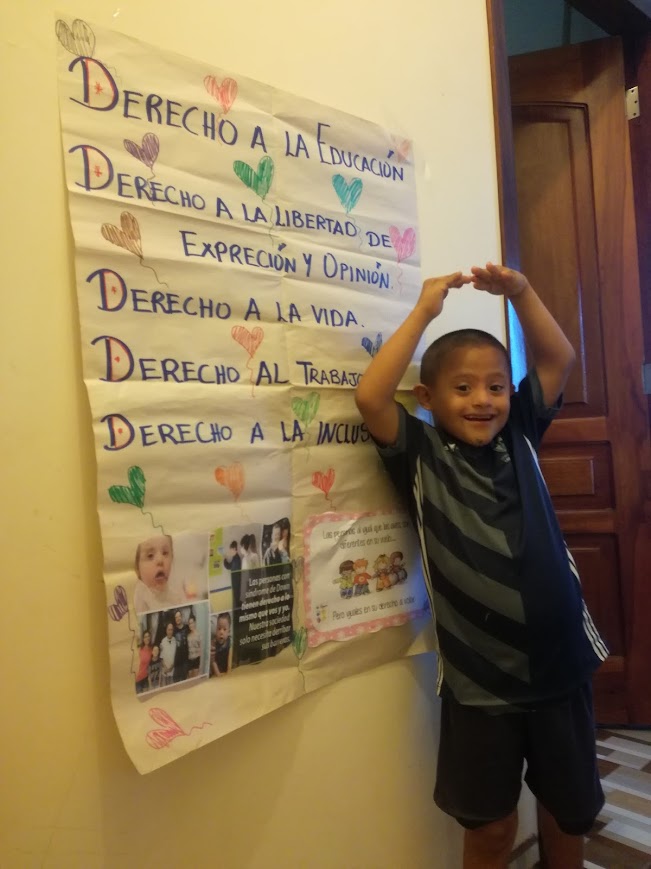 DERECHO A LA EDUCACIÓN
DERECHO A LA LIBERTAD DE
EXPRECIÓN Y OPINIÓN.
DERECHO A LA VIDA.
DERECHO AL TRABAJO
DERECHO A LA INCLUS
Las personas con
síndrome de Down
tienen derecho a lo
mismo que vos y yo.
Nuestra sociedad
solo necesita derribar
sus barreras.
Las personas al igual que las aves, son
diferentes en su vuelo...
Pero iguales en su derecho a volar